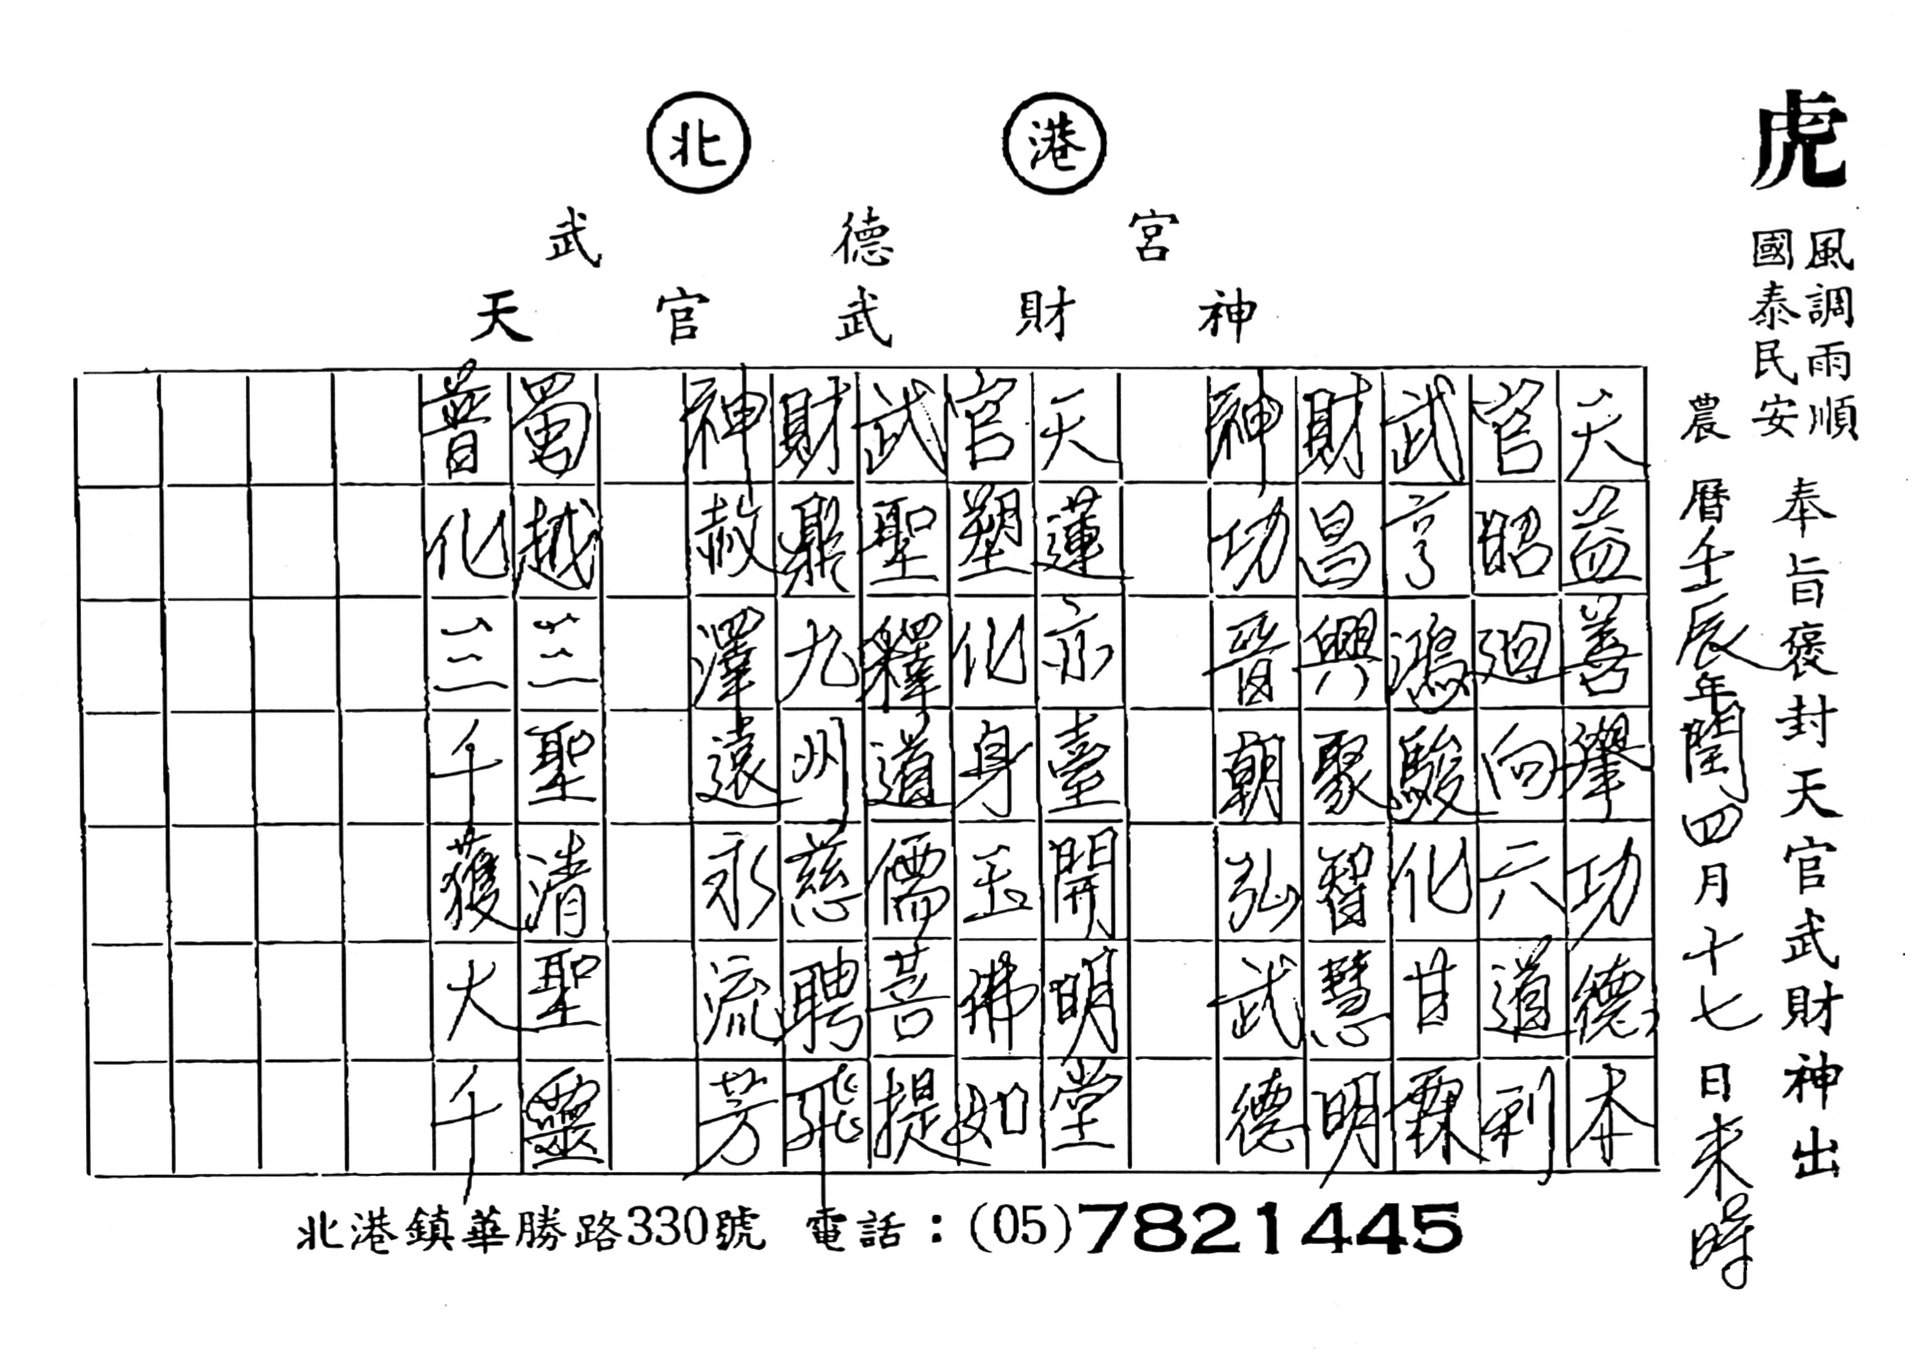 虎
風調雨順
國泰民安
奉旨褒封天官武財神出
農曆壬辰年閏四月十七日未時
北港
武德宮
天官武財神
天益善擧功德本
官昭迴向六道利
武亨鴻駿化甘霖
財昌興聚智慧明
神功晉朝弘武德
天蓮亦臺開明堂
官塑化身玉佛如
武聖釋道儒菩提
財鼎九州慈聘飛
神赦澤遠永流芳
蜀越三聖清聖靈
普化三千獲大千
北港鎮華勝路330號 電話：(05)7821445